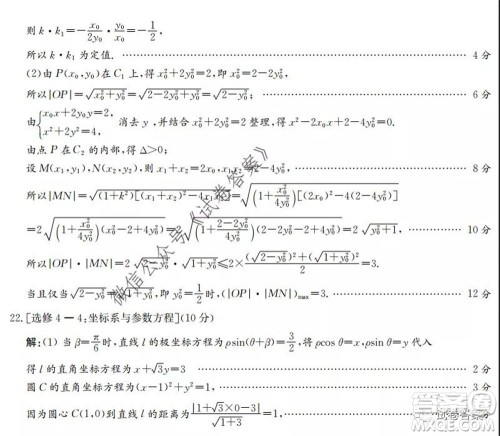 则k·k₁=-x₀/2y₀·y₀/x₀=-1/2,
所以k·k₁为定值. 4分
(2)由P(x₀,y₀)在C₁上,得x₀²+2y₀²=2,即x₀²=2-2y₀²,
所以|OP|=√(x₀²+y₀²)=√(2-2y₀²+y₀²)=√(2-y₀²); 6分
由{x₀x+2y₀y=2, x²+2y²=4, 消去y,并结合x₀²+2y₀²=2整理,得x²-2x₀x+2-4y₀²=0,
由点P在C₂的内部,得Δ>0;
设M(x₁,y₁),N(x₂,y₂),则x₁+x₂=2x₀,x₁x₂=2-4y₀², 8分
所以|MN|=√((1+k²)[(x₁+x₂)²-4x₁x₂])=√((1+x₀²/4y₀²)[(2x₀)²-4(2-4y₀²)])
=2√((1+x₀²/4y₀²)(x₀²-2+4y₀²))=2√((1+(2-2y₀²)/4y₀²)(2-2y₀²-2+4y₀²))=2√(y₀²+1), 10分
所以|OP|·|MN|=2√(2-y₀²)·√(y₀²+1)≤2×((√(2-y₀²))²+(√(y₀²+1))²)/2=3.
当且仅当√(2-y₀²)=√(y₀²+1),即y₀²=1/2时,(|OP|·|MN|)max=3. 12分
22.[选修4-4:坐标系与参数方程](10分)
解:(1)当β=π/6时,直线l的极坐标方程为ρsin(θ+β)=3/2,将ρcosθ=x,ρsinθ=y代入
得l的直角坐标方程为x+√3y=3 2分
圆C的直角坐标方程为(x-1)²+y²=1,
因为圆心C(1,0)到直线l的距离为|1+√3×0-3|/√(1+3)=1,
微信公众号《试卷答案》